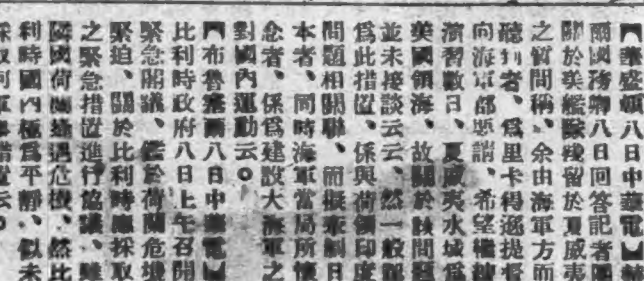 華盛頓八日中華電
爾國務卿八日回答記者團
關於美艦隊殘留於夏威夷
之質問稱、余由海軍方面
聽到者、爲里卡得遜提督
向海軍部懇請、希望繼續
演習數日、夏威夷水域爲
英國領海、故關於該問題
並未接談云云、然一般
爲此措置、係與荷領印度
問題相關聯、而擬牽制日
本者、同時海軍當局所懷
念者、係爲建設大海軍之
對國內運動云。
布魯塞爾八日中華電
比利時政府八日上午召開
緊急閣議、鑑於荷蘭危境
緊迫、關於比利時應採取
之緊急措置進行協議、雖
鄰國荷蘭遭遇危機、然比
利時國內極爲平靜、似未
採取何軍事措置云。